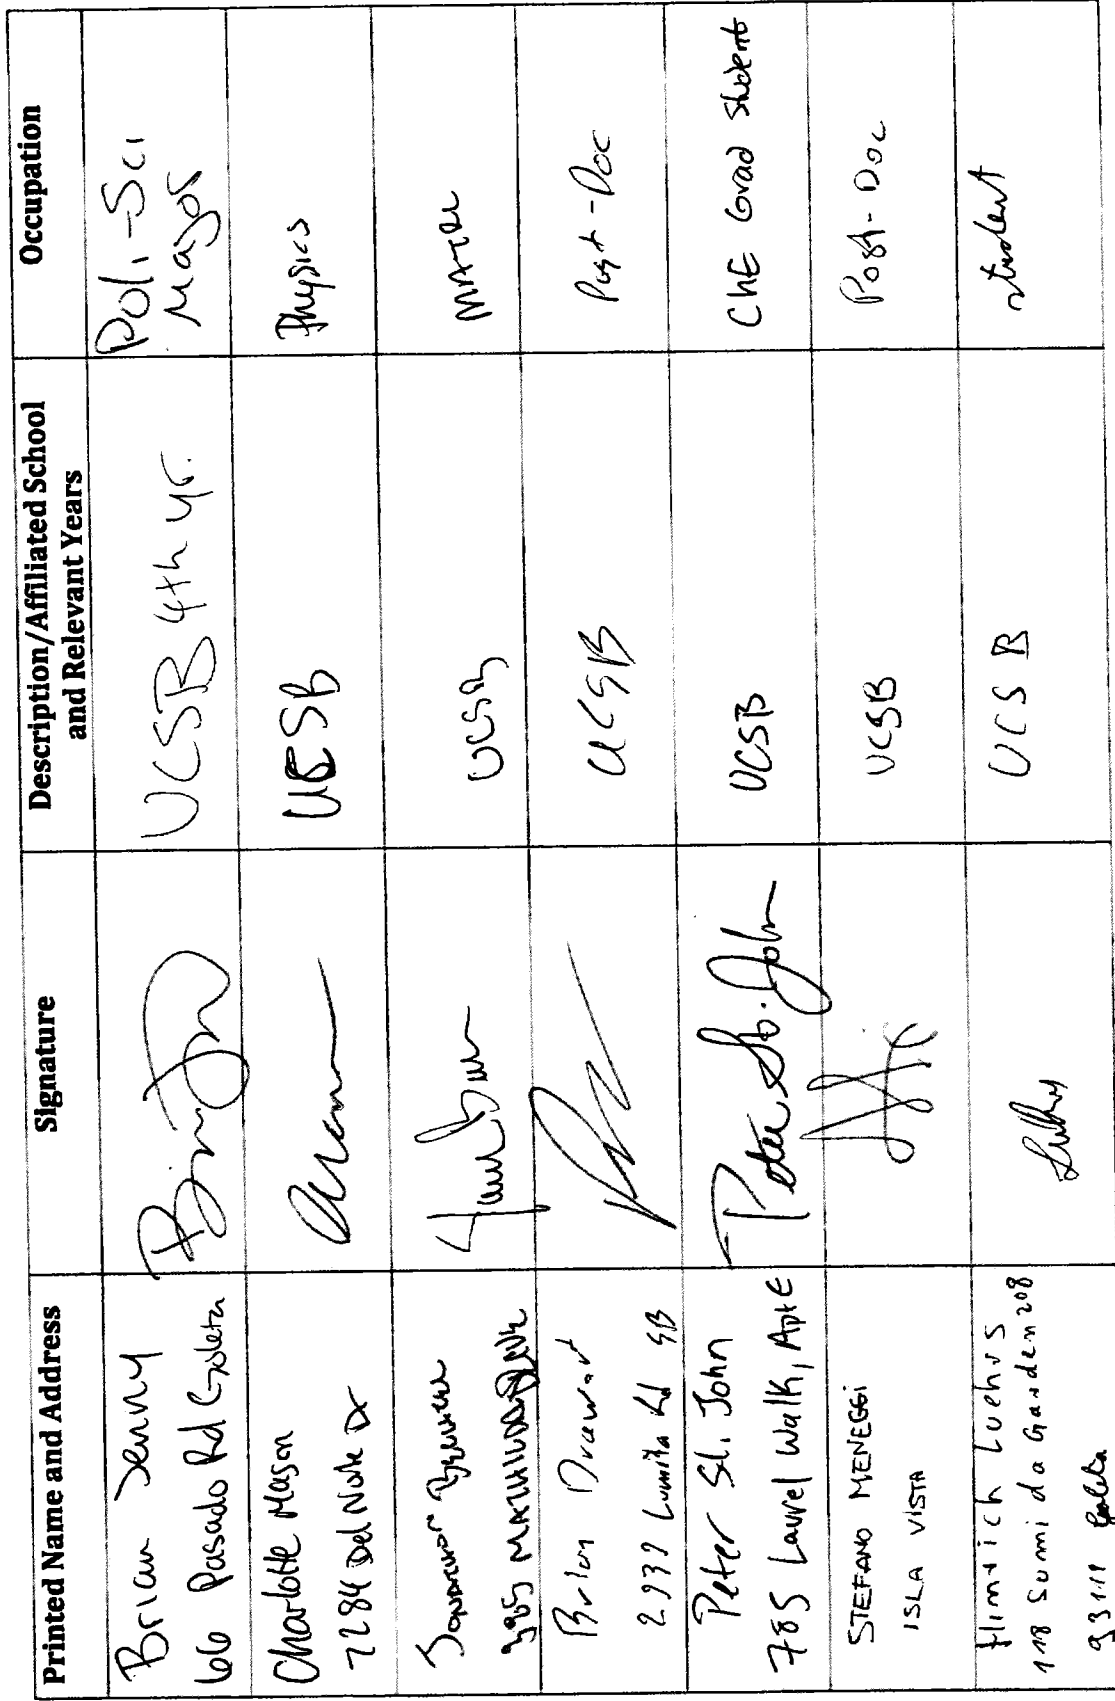 Printed Name and Address
Signature
Description/Affiliated School
and Relevant Years
Occupation
Brian Denny
66 Pasado Rd Goleta
UCSB 4th yr.
Poli-Sci
Major
Charlotte Mason
7284 Del Norte Dr
UCSB
Physics
UCSB
MATRL
Brian Drawert
Rd SB
UCSB
Post-Doc
Peter St. John
785 Laurel Walk, Apt E
Peter St. John
UCSB
ChE Grad Student
STEFANO MENEGGI
ISLA VISTA
UCSB
Post-Doc
Hinrich Luehrs
Sumida Garden 208
93111 Goleta
UCSB
student